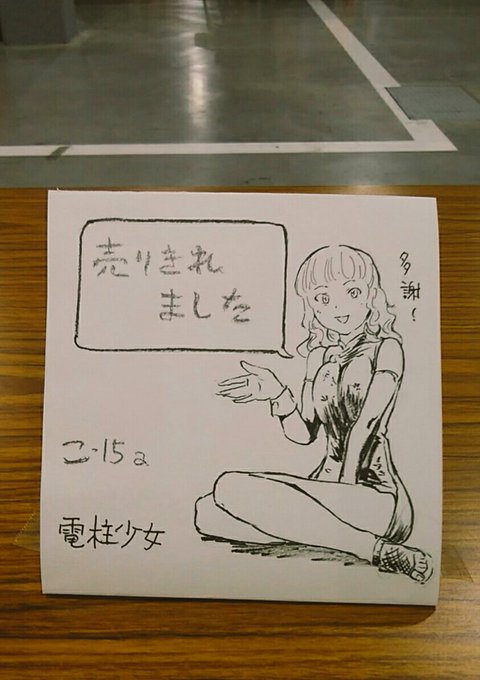 売りきれ
ました
多謝~
こ-15a
電柱少女